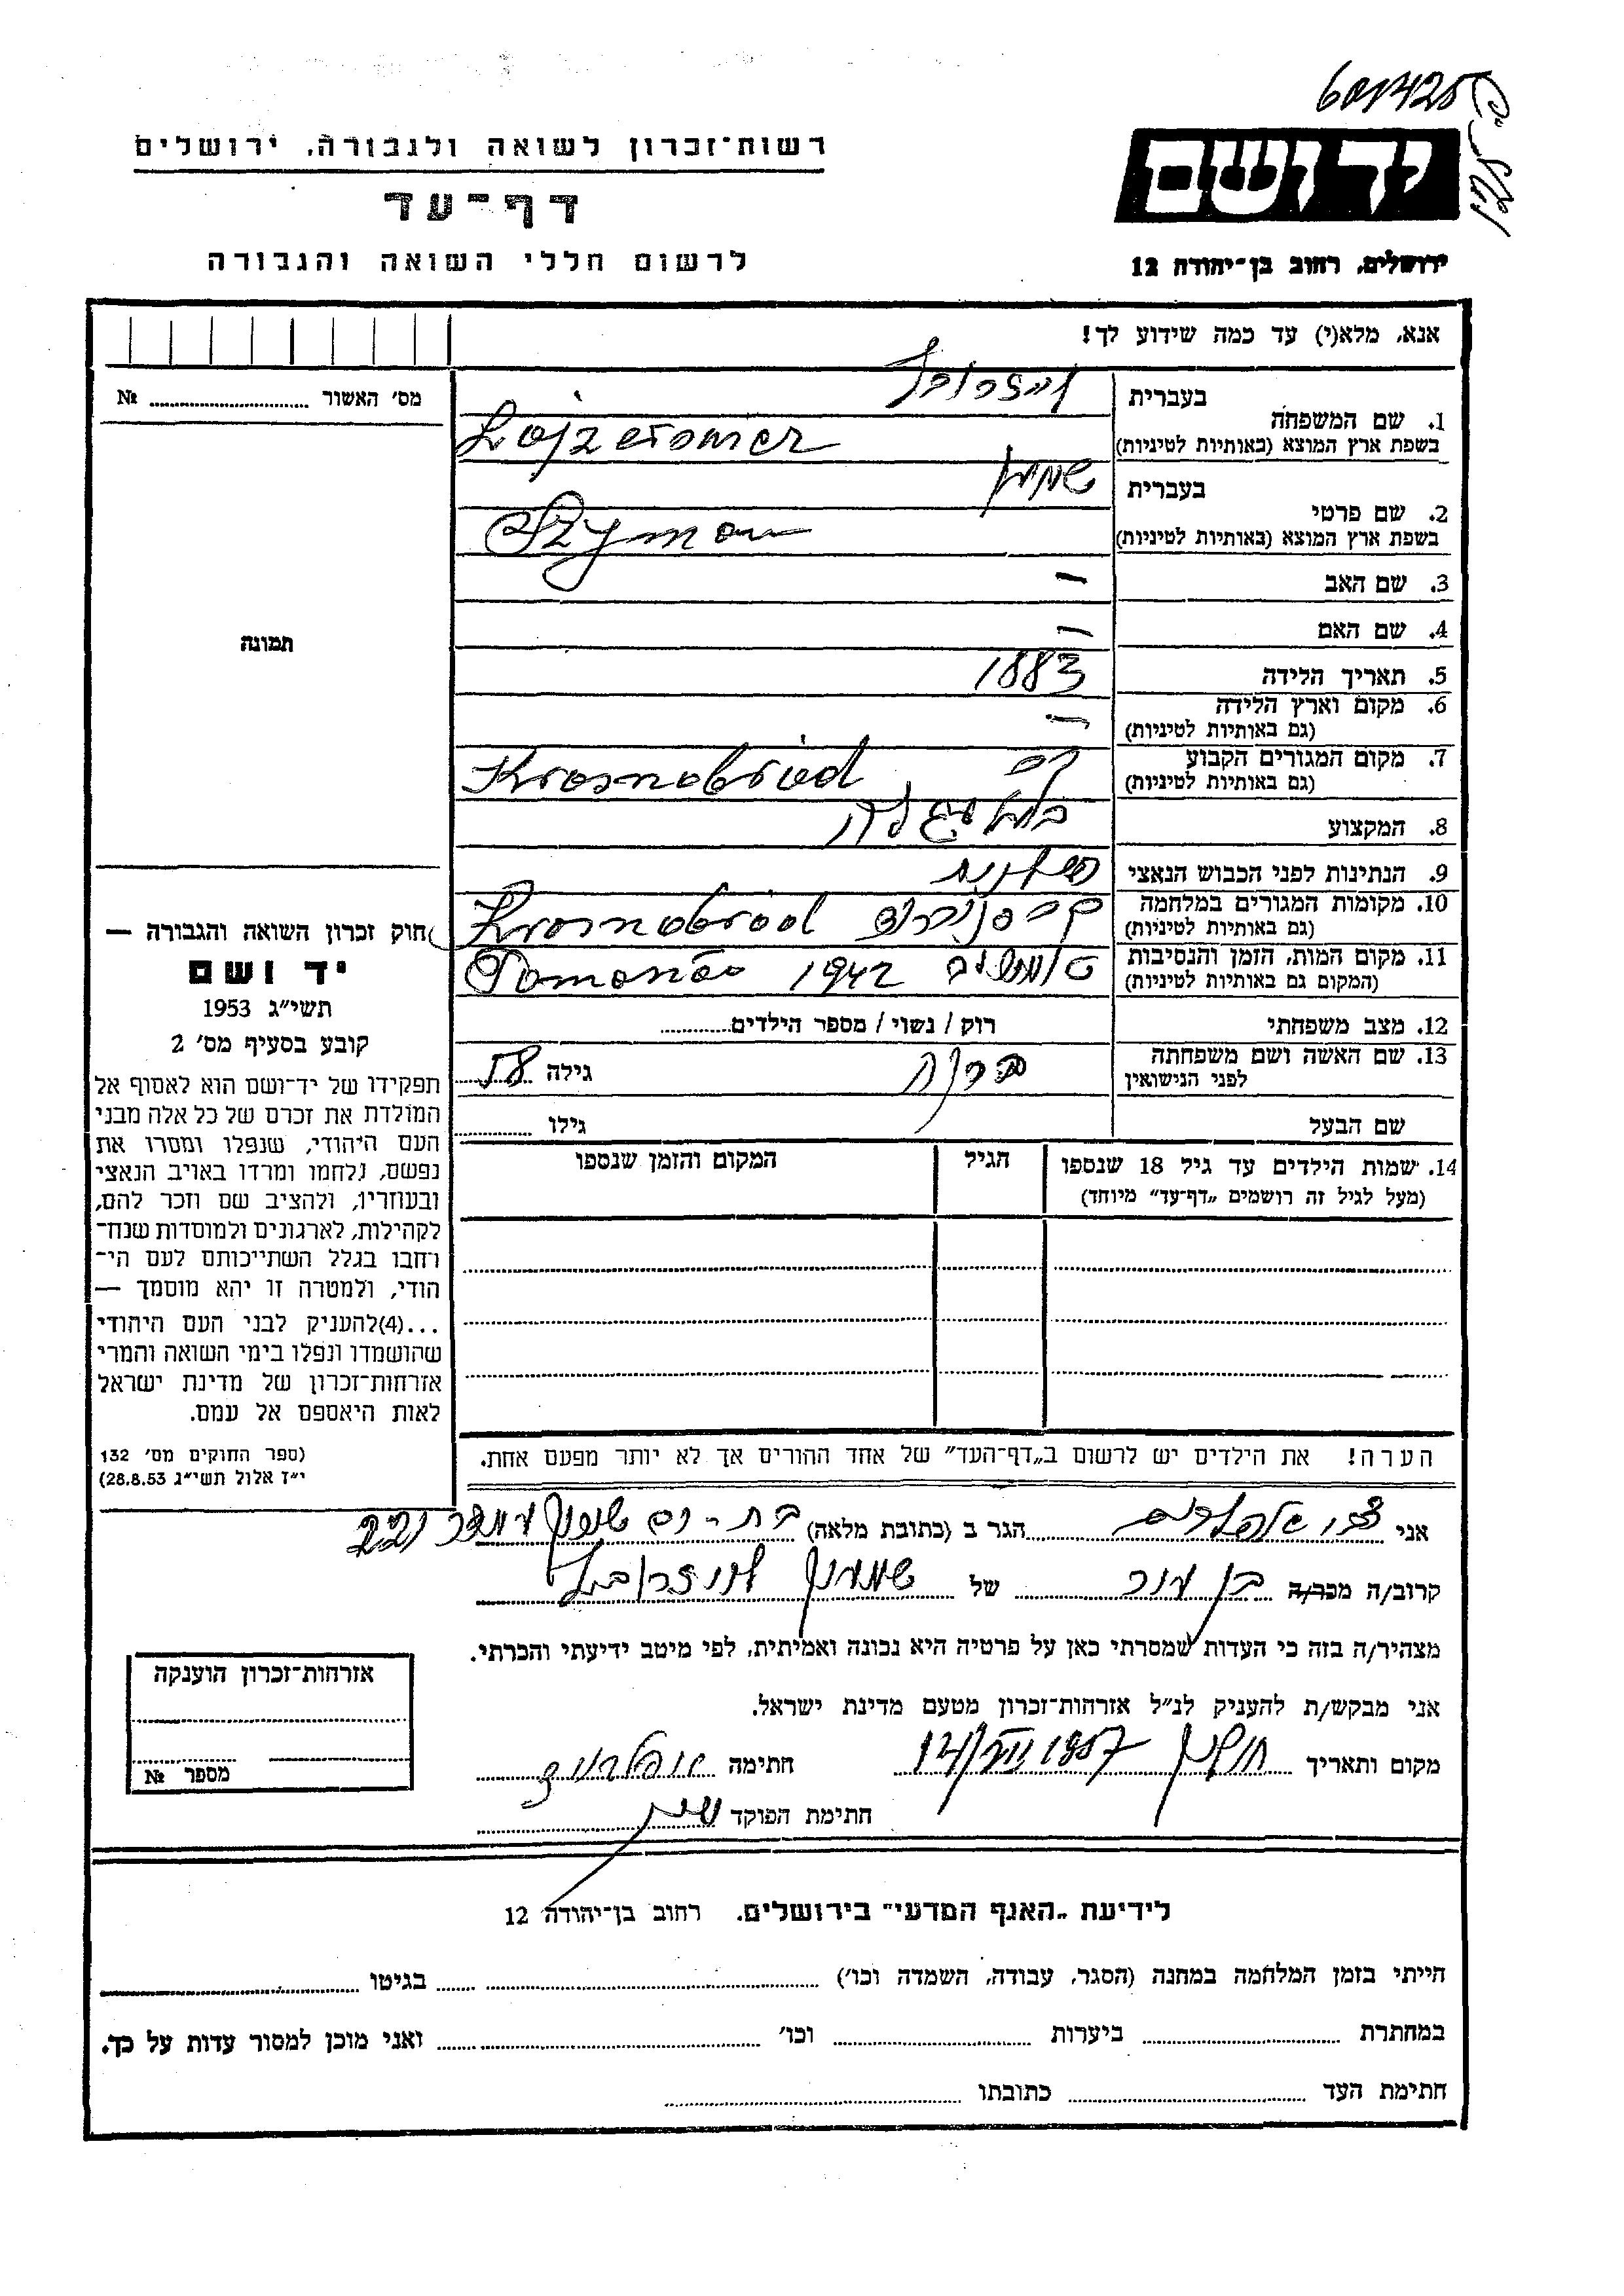 601425
רשות־זכרון לשואה ולגבורה, ירושלים
יד ושם
דף־עד
לרשום חללי השואה והגבורה
ירושלים, רחוב בן־יהודה 12
אנא, מלא(י) עד כמה שידוע לך!
מס׳ האשור № 
בעברית
1. שם המשפחה
בשפת ארץ המוצא (באותיות לטיניות)
בעברית שמעון
2. שם פרטי
בשפת ארץ המוצא (באותיות לטיניות) Szymon
3. שם האב —
4. שם האם —
תמונה
5. תאריך הלידה 1883
6. מקום וארץ הלידה —
(גם באותיות לטיניות)
7. מקום המגורים הקבוע Krosnobród
(גם באותיות לטיניות)
8. המקצוע
9. הנתינות לפני הכבוש הנאצי
10. מקומות המגורים במלחמה Krosnobród
(גם באותיות לטיניות)
11. מקום המות, הזמן והנסיבות 1942
(המקום גם באותיות לטיניות)
12. מצב משפחתי רוק / נשוי / מספר הילדים
13. שם האשה ושם משפחתה גילה 58
לפני הנישואין
שם הבעל גילו
14. שמות הילדים עד גיל 18 שנספו הגיל המקום והזמן שנספו
(מעל לגיל זה רושמים „דף־עד” מיוחד)
חוק זכרון השואה והגבורה —
יד ושם
תשי״ג 1953
קובע בסעיף מס׳ 2
תפקידו של יד־ושם הוא לאסוף אל
המולדת את זכרם של כל אלה מבני
העם היהודי, שנפלו ומסרו את
נפשם, נלחמו ומרדו באויב הנאצי
ובעוזריו, ולהציב שם וזכר להם,
לקהילות, לארגונים ולמוסדות שנח־
רבו בגלל השתייכותם לעם הי־
הודי, ולמטרה זו יהא מוסמך —
...(4)להעניק לבני העם היהודי
שהושמדו ונפלו בימי השואה והמרי
אזרחות־זכרון של מדינת ישראל
לאות היאספם אל עמם.
(ספר החוקים מס׳ 132
י״ז אלול תשי״ג 28.8.53)
הערה! את הילדים יש לרשום ב„דף־העד” של אחד ההורים אך לא יותר מפעם אחת.
אני הגר ב (כתובת מלאה) בת-ים
קרוב/ה מכר/ה של שמעון
מצהיר/ה בזה כי העדות שמסרתי כאן על פרטיה היא נכונה ואמיתית, לפי מיטב ידיעתי והכרתי.
אני מבקש/ת להעניק לנ״ל אזרחות־זכרון מטעם מדינת ישראל.
מקום ותאריך חולון 1957 חתימה
חתימת הפוקד
אזרחות־זכרון הוענקה
מספר №
לידיעת „האגף המדעי” בירושלים, רחוב בן־יהודה 12
הייתי בזמן המלחמה במחנה (הסגר, עבודה, השמדה וכו׳) בגיטו
במחתרת ביערות וכו׳ ואני מוכן למסור עדות על כך.
חתימת העד כתובתו